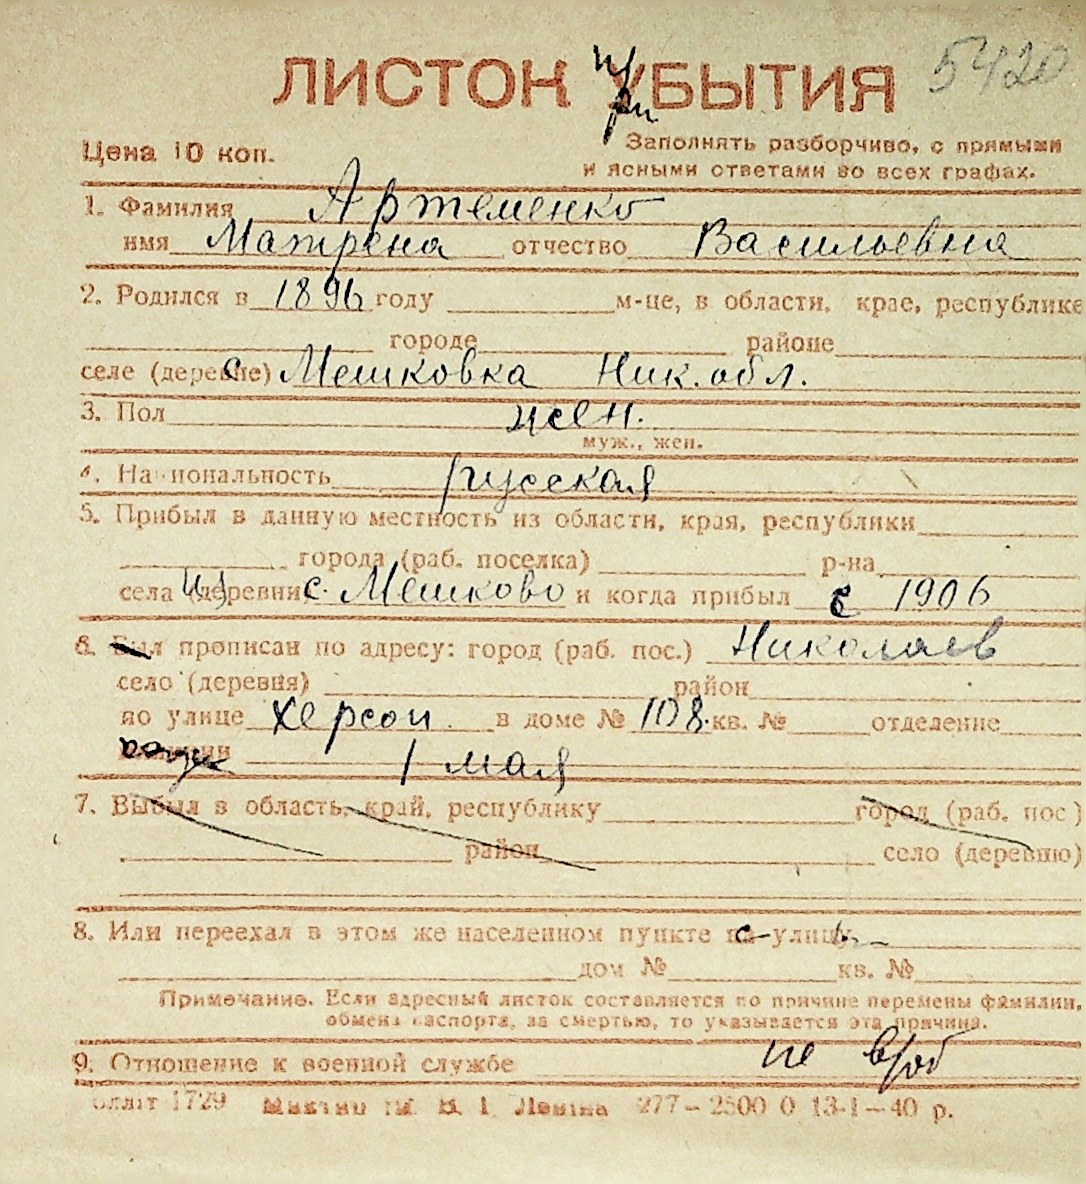 ЛИСТОК УБЫТИЯ
при
5420
Цена 10 коп.
Заполнять разборчиво, с прямыми
и ясными ответами во всех графах.
1. Фамилия Артеменко
имя Матрена отчество Васильевна
2. Родился в 1896 году м-це, в области, крае, республике
городе районе
селе (деревне) с Мешковка Ник. обл.
3. Пол жен.
муж., жен.
4. Национальность русская
5. Прибыл в данную местность из области, края, республики
города (раб. поселка) р-на
села (деревни) из с. Мешково и когда прибыл с 1906
6. Был прописан по адресу: город (раб. пос.) Николаев
село (деревня) район
по улице Херсон. в доме № 108. кв. № отделение
1 мая
7. Выбыл в область, край, республику город (раб. пос)
район село (деревню)
8. Или переехал в этом же населенном пункте на улицу с
дом № кв. №
Примечание. Если адресный листок составляется по причине перемены фамилии,
обмена паспорта, за смертью, то указывается эта причина.
9. Отношение к военной службе не в/об
1729 В. І. Леніна 277—2500 0 13-1—40 р.